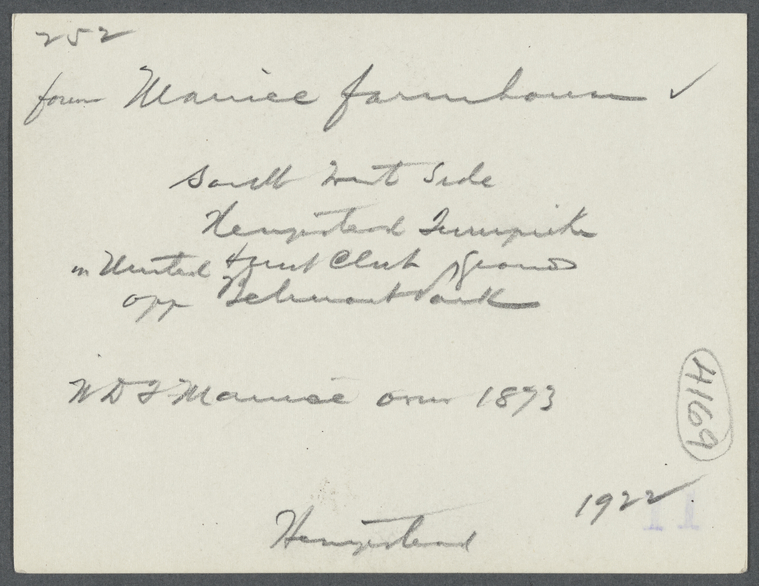 252
form Manice farmhouse ✓
South West Side
Hempstead Turnpike
in United Hunt Club Grounds
opp Belmont Park
W D F Manice own 1873
4169
1922
11
Hempstead